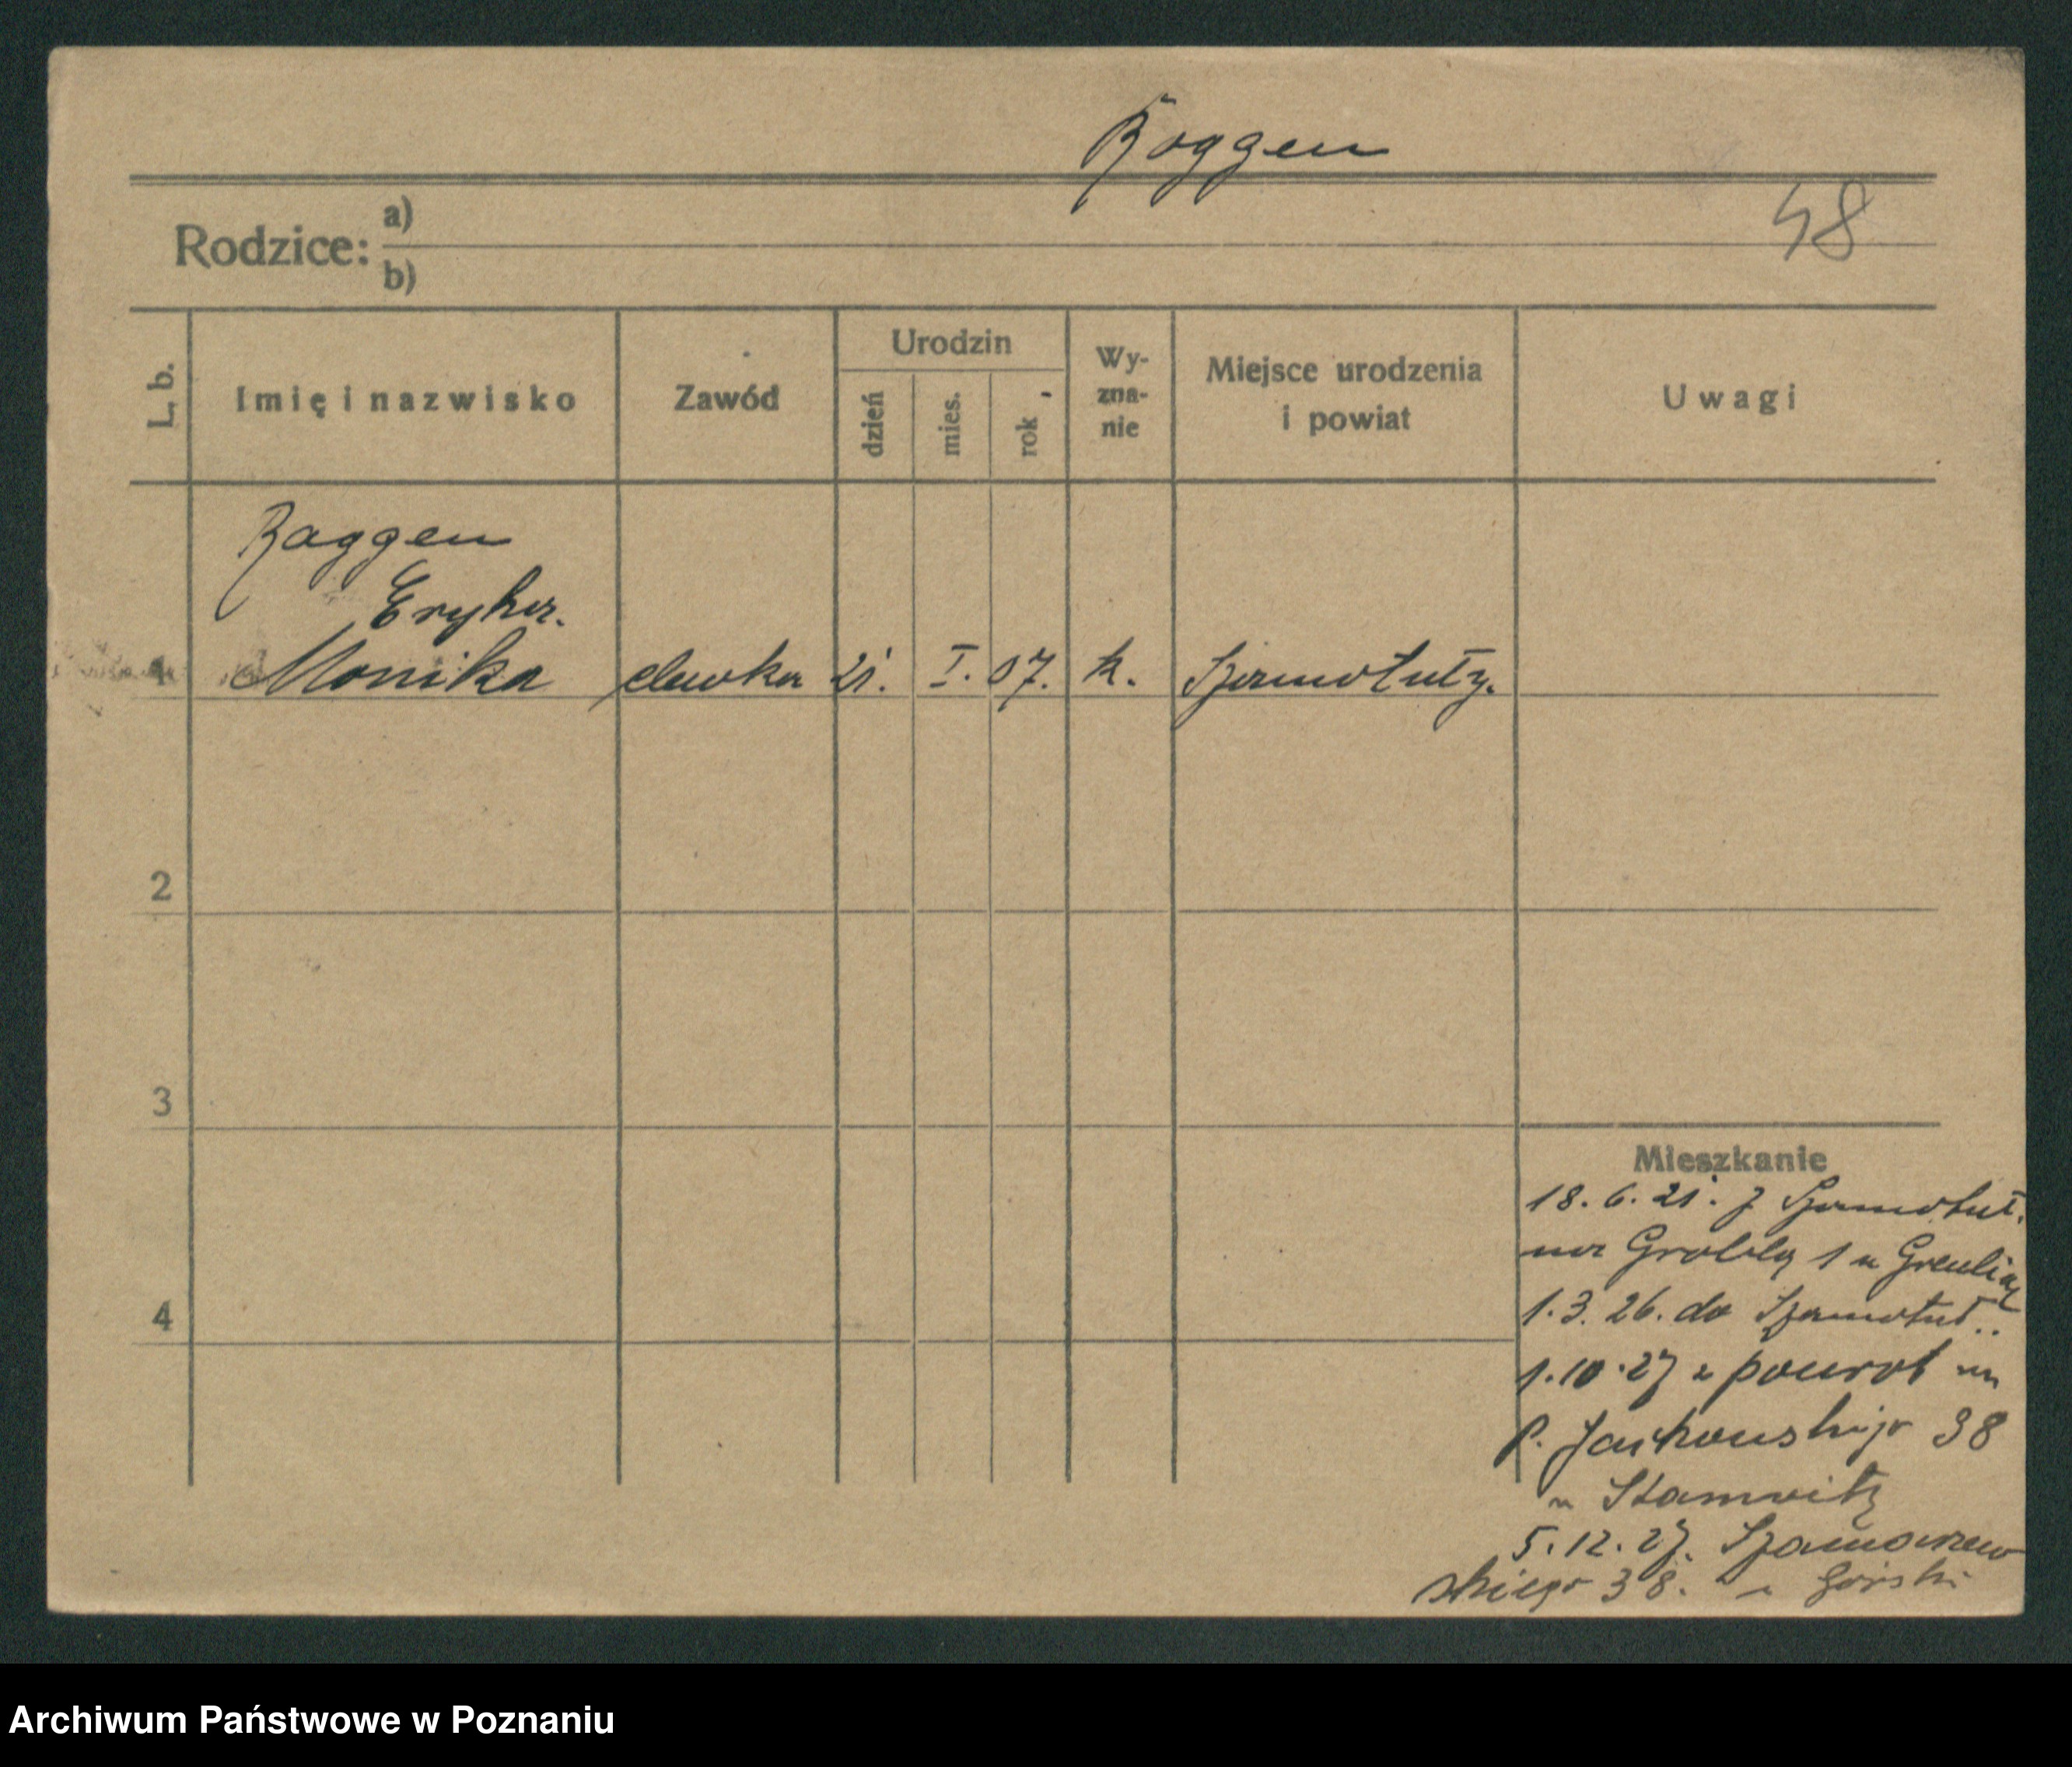 Roggen
48
Rodzice: a)
b)
L. b. Imię i nazwisko Zawód Urodzin dzień mies. rok Wy-zna-nie Miejsce urodzenia i powiat Uwagi
Raggen
Eryka.
1 Monika 21. I. 07. k. Szamotuły.
2
3
4
Mieszkanie
18. 6. 21. z Szamotuł.
na Grobla 1 u
1. 3. 26. do Szamotuł..
1.10.27 z powrot
P. Jackowskiego 38
u Stamwitz
5.12.27. Szamarzew
skiego 38. u Górski
Archiwum Państwowe w Poznaniu